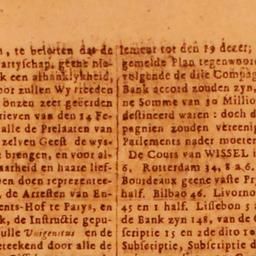 , te beloften dat de
artyschap, geene nie-
k een athanklykheid,
oor zullen Wy treeden
onzen zeer geëerden
rieven van den 14 Fe-
alle de Prelaaten van
zelven Geest de wys-
e brengen, en voor al-
aarheid en haare lief-
en door reprezentee-
, de Arresten van En-
ents-Hof te Parys, en
k, de Instructie gepu-
ulle Unigenitus en de
eteekend door alle de
lement tot den 19 dezer;
gemelde Plan tegenwoor
volgende de drie Compag
Bank accord zouden zyn,
ne Somme van 20 Million
destineerd waren: doch d
pagnien zouden vereenig
Parlements nader moeten
De Cours van WISSEL i
6. Rotterdam 34, 8 a 6.
Bourdeaux geene vaste Pr
half. Bilbao 46. Livorno
45 en 1 half. Lissebon 5
de Bank zyn 148, van de
scriptie 15 en 2de dito 10
Subscriptie, Subscriptie d